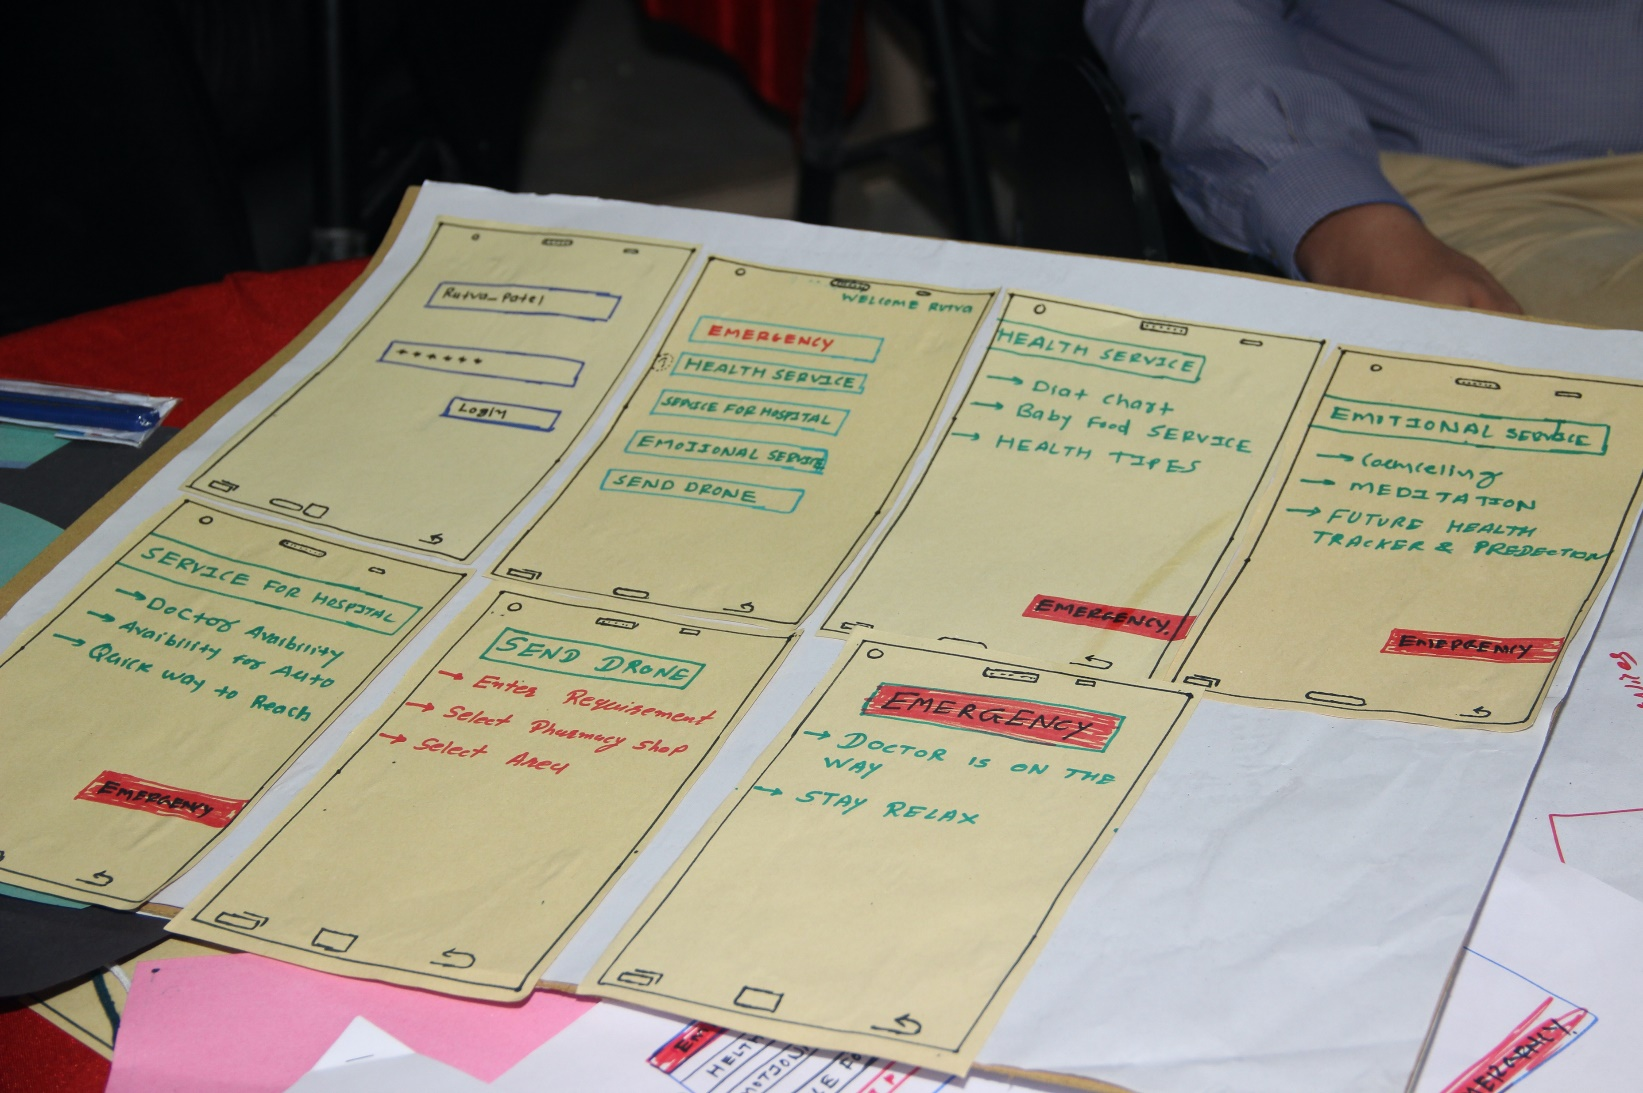 Rutva_Patel
******
Login
WELCOME RUTVA
EMERGENCY
HEALTH SERVICE
SERVICE FOR HOSPITAL
EMOTIONAL SERVICE
SEND DRONE
HEALTH SERVICE
→ Diat chart
→ Baby Food SERVICE
→ HEALTH TIPES
EMERGENCY.
EMOTIONAL SERVICE
→ Coemcelling
→ MEDITATION
→ FUTURE HEALTH
TRACKER & PREDECTION
EMERGENCY
SERVICE FOR HOSPITAL
→ Doctor Avaibility
→ Avaibility for Auto
→ Quick way to Reach
EMERGENCY
SEND DRONE
→ Enter Requirement
→ Select Pharmacy shop
→ Select Area
EMERGENCY
→ DOCTOR IS ON THE
WAY
→ STAY RELAX
EMERGENCY.